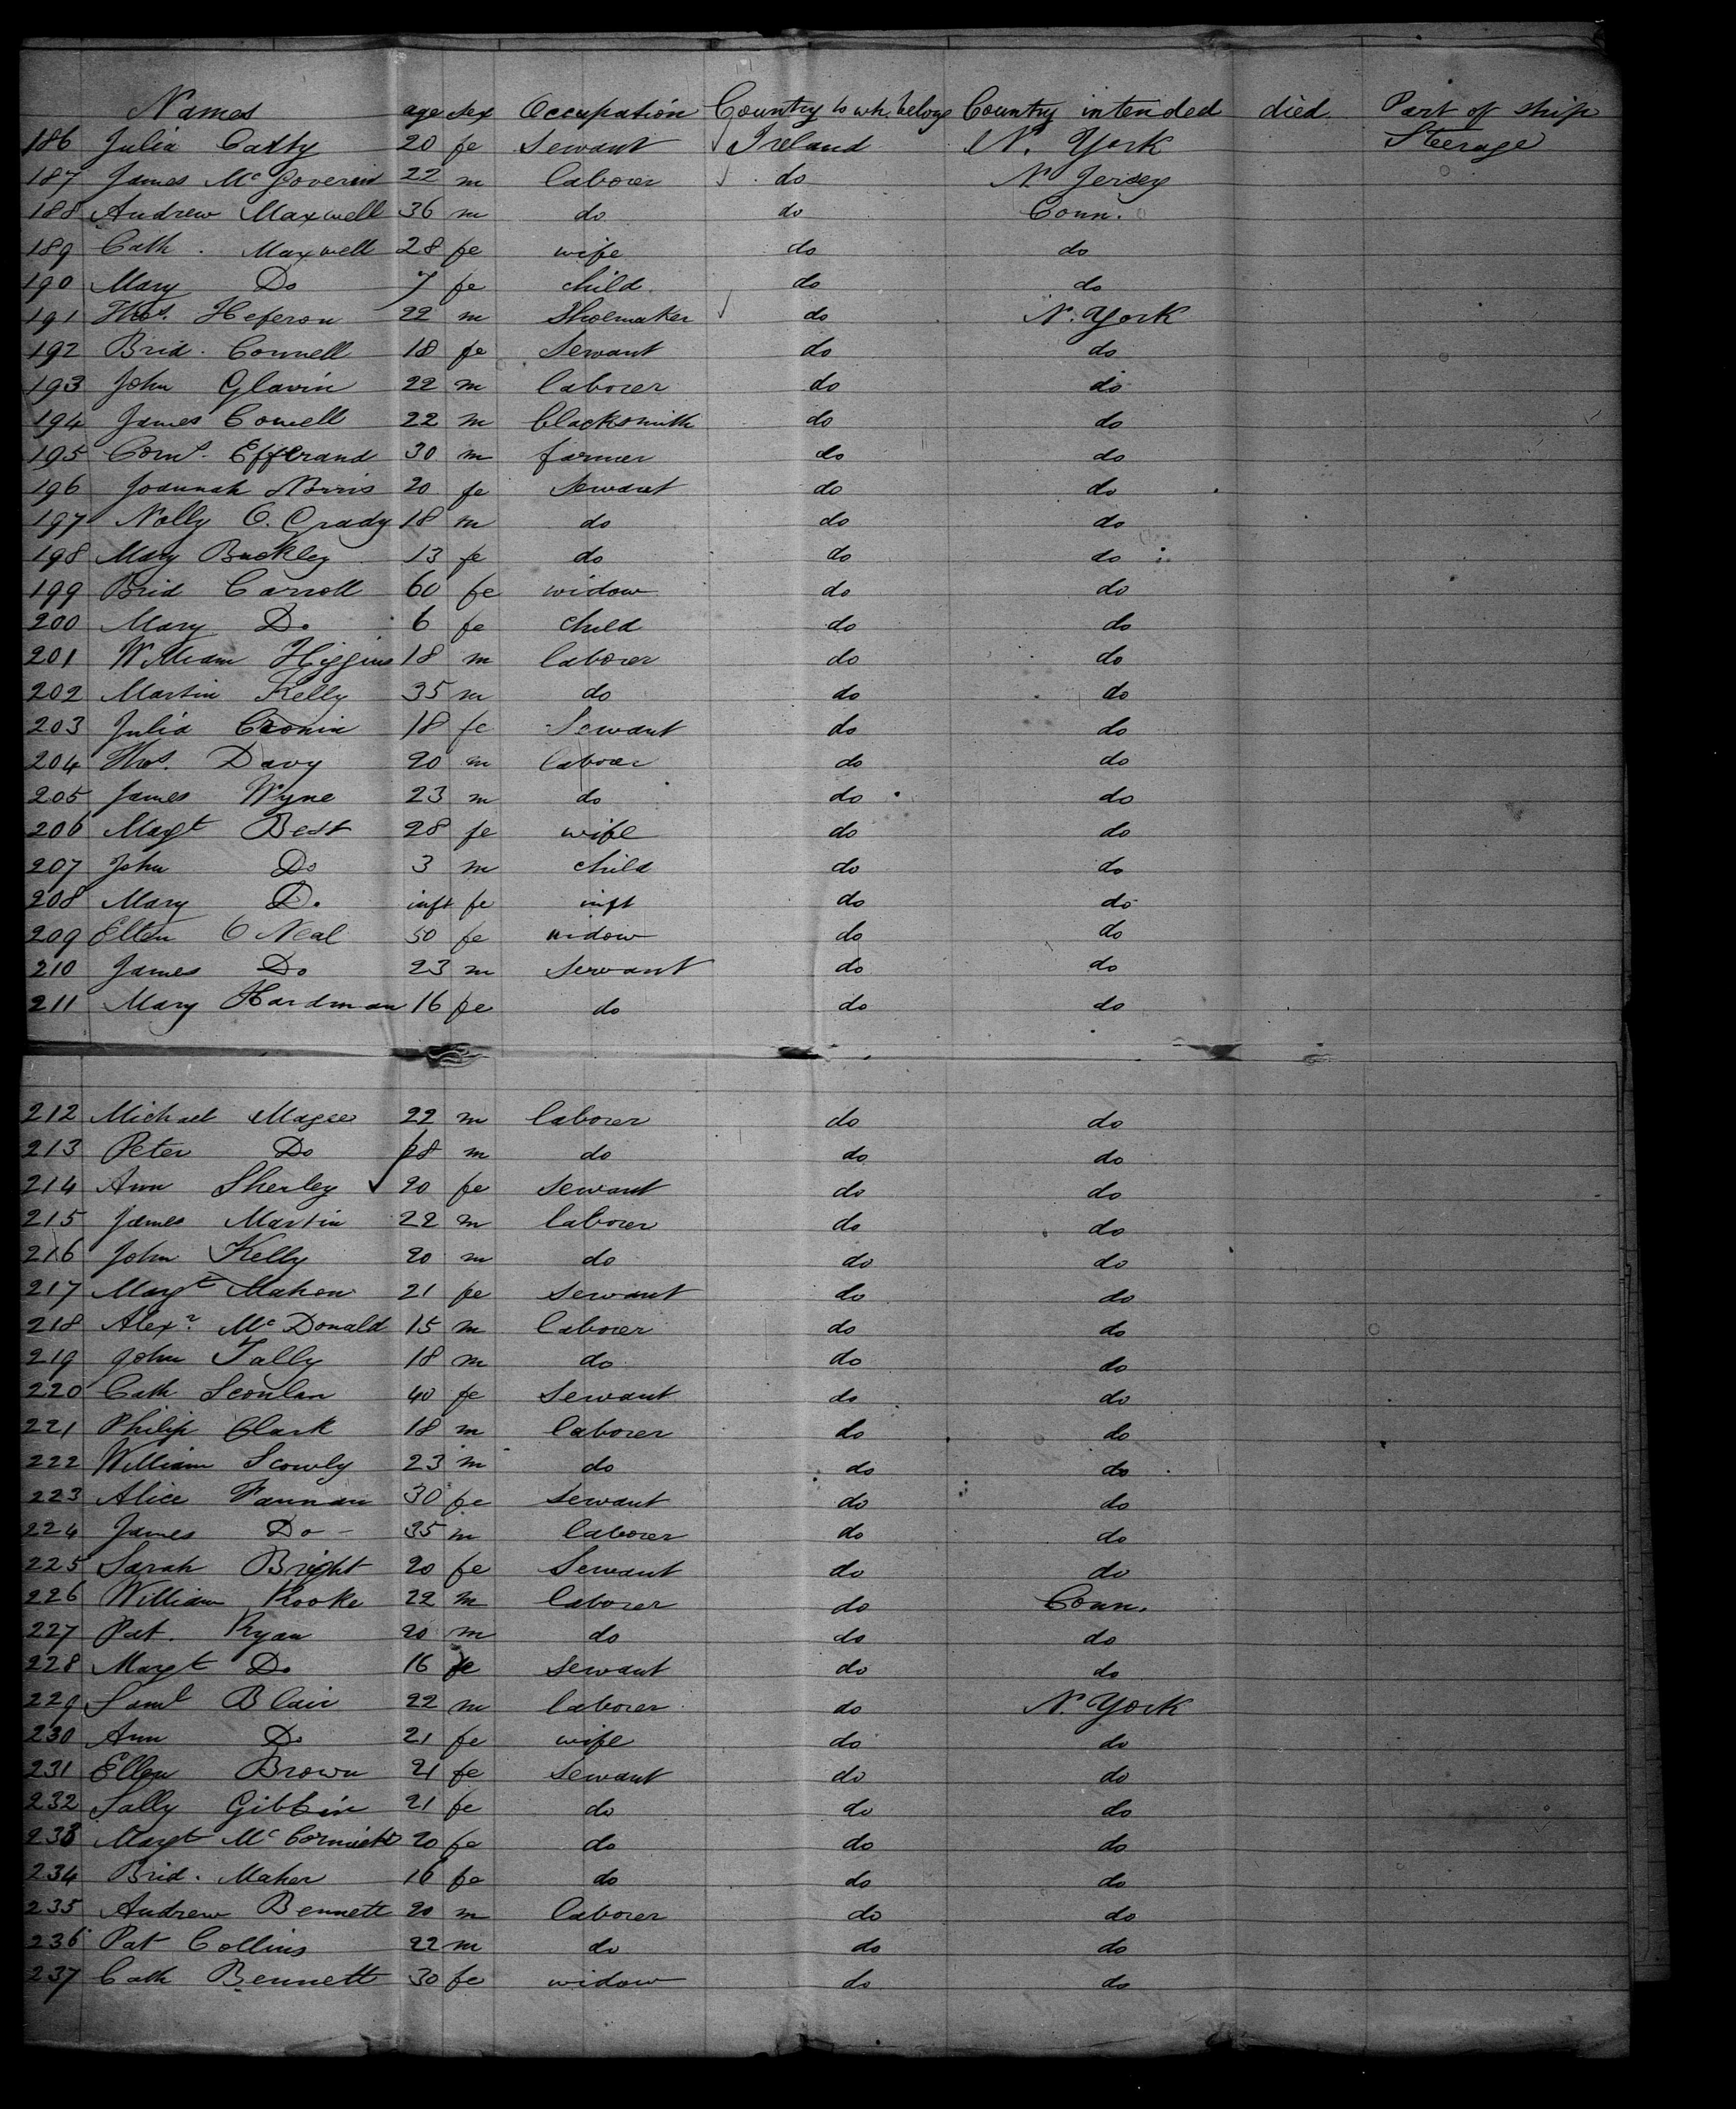 Names age sex Occupation Country to wh. belong Country intended died Part of ship
186 Julia Catty 20 fe Servant Ireland N. York Steerage
187 James McGoverin 22 m laborer do N Jersey
188 Andrew Maxwell 36 m do do Conn.
189 Cath. Maxwell 28 fe wife do do
190 Mary Do 7 fe child do do
191 Thos. Heferon 22 m Shoemaker do N. York
192 Brid. Connell 18 fe Servant do do
193 John Glavin 22 m laborer do do
194 James Connell 22 m blacksmith do do
195 Corns. Efferand 30 m farmer do do
196 Joannah Norris 20 fe Servant do do
197 Nolly O. Grady 18 m do do do
198 Mary Buckley 13 fe do do do
199 Brid Carroll 60 fe widow do do
200 Mary Do 6 fe child do do
201 William Higgins 18 m laborer do do
202 Martin Kelly 35 m do do do
203 Julia Cronin 18 fe Servant do do
204 Thos. Davy 20 m laborer do do
205 James Wyne 23 m do do do
206 Magt Best 28 fe wife do do
207 John Do 3 m child do do
208 Mary Do inft fe inft do do
209 Ellen O Neal 50 fe widow do do
210 James Do 23 m Servant do do
211 Mary Hardman 16 fe do do do
212 Michael Magee 22 m laborer do do
213 Peter Do 18 m do do do
214 Ann Sherley 20 fe servant do do
215 James Martin 22 m laborer do do
216 John Kelly 20 m do do do
217 Margt Mahon 21 fe servant do do
218 Alexr. Mc Donald 15 m laborer do do
219 John Tally 18 m do do do
220 Cath Sconlan 40 fe Servant do do
221 Philip Clark 18 m laborer do do
222 William Scowly 23 m do do do
223 Alice Fannan 30 fe servant do do
224 James Do - 35 m laborer do do
225 Sarah Bright 20 fe Servant do do
226 William Rooke 22 m laborer do Conn.
227 Pat. Ryan 20 m do do do
228 Margt Do 16 fe servant do do
229 Saml Blair 22 m laborer do N. York
230 Ann Do 21 fe wife do do
231 Ellen Brown 21 fe servant do do
232 Sally Gibbin 21 fe do do do
233 Margt McCormick 20 fe do do do
234 Brid. Maher 16 fe do do do
235 Andrew Bennett 20 m laborer do do
236 Pat Collins 22 m do do do
237 Cath Bennett 30 fe widow do do